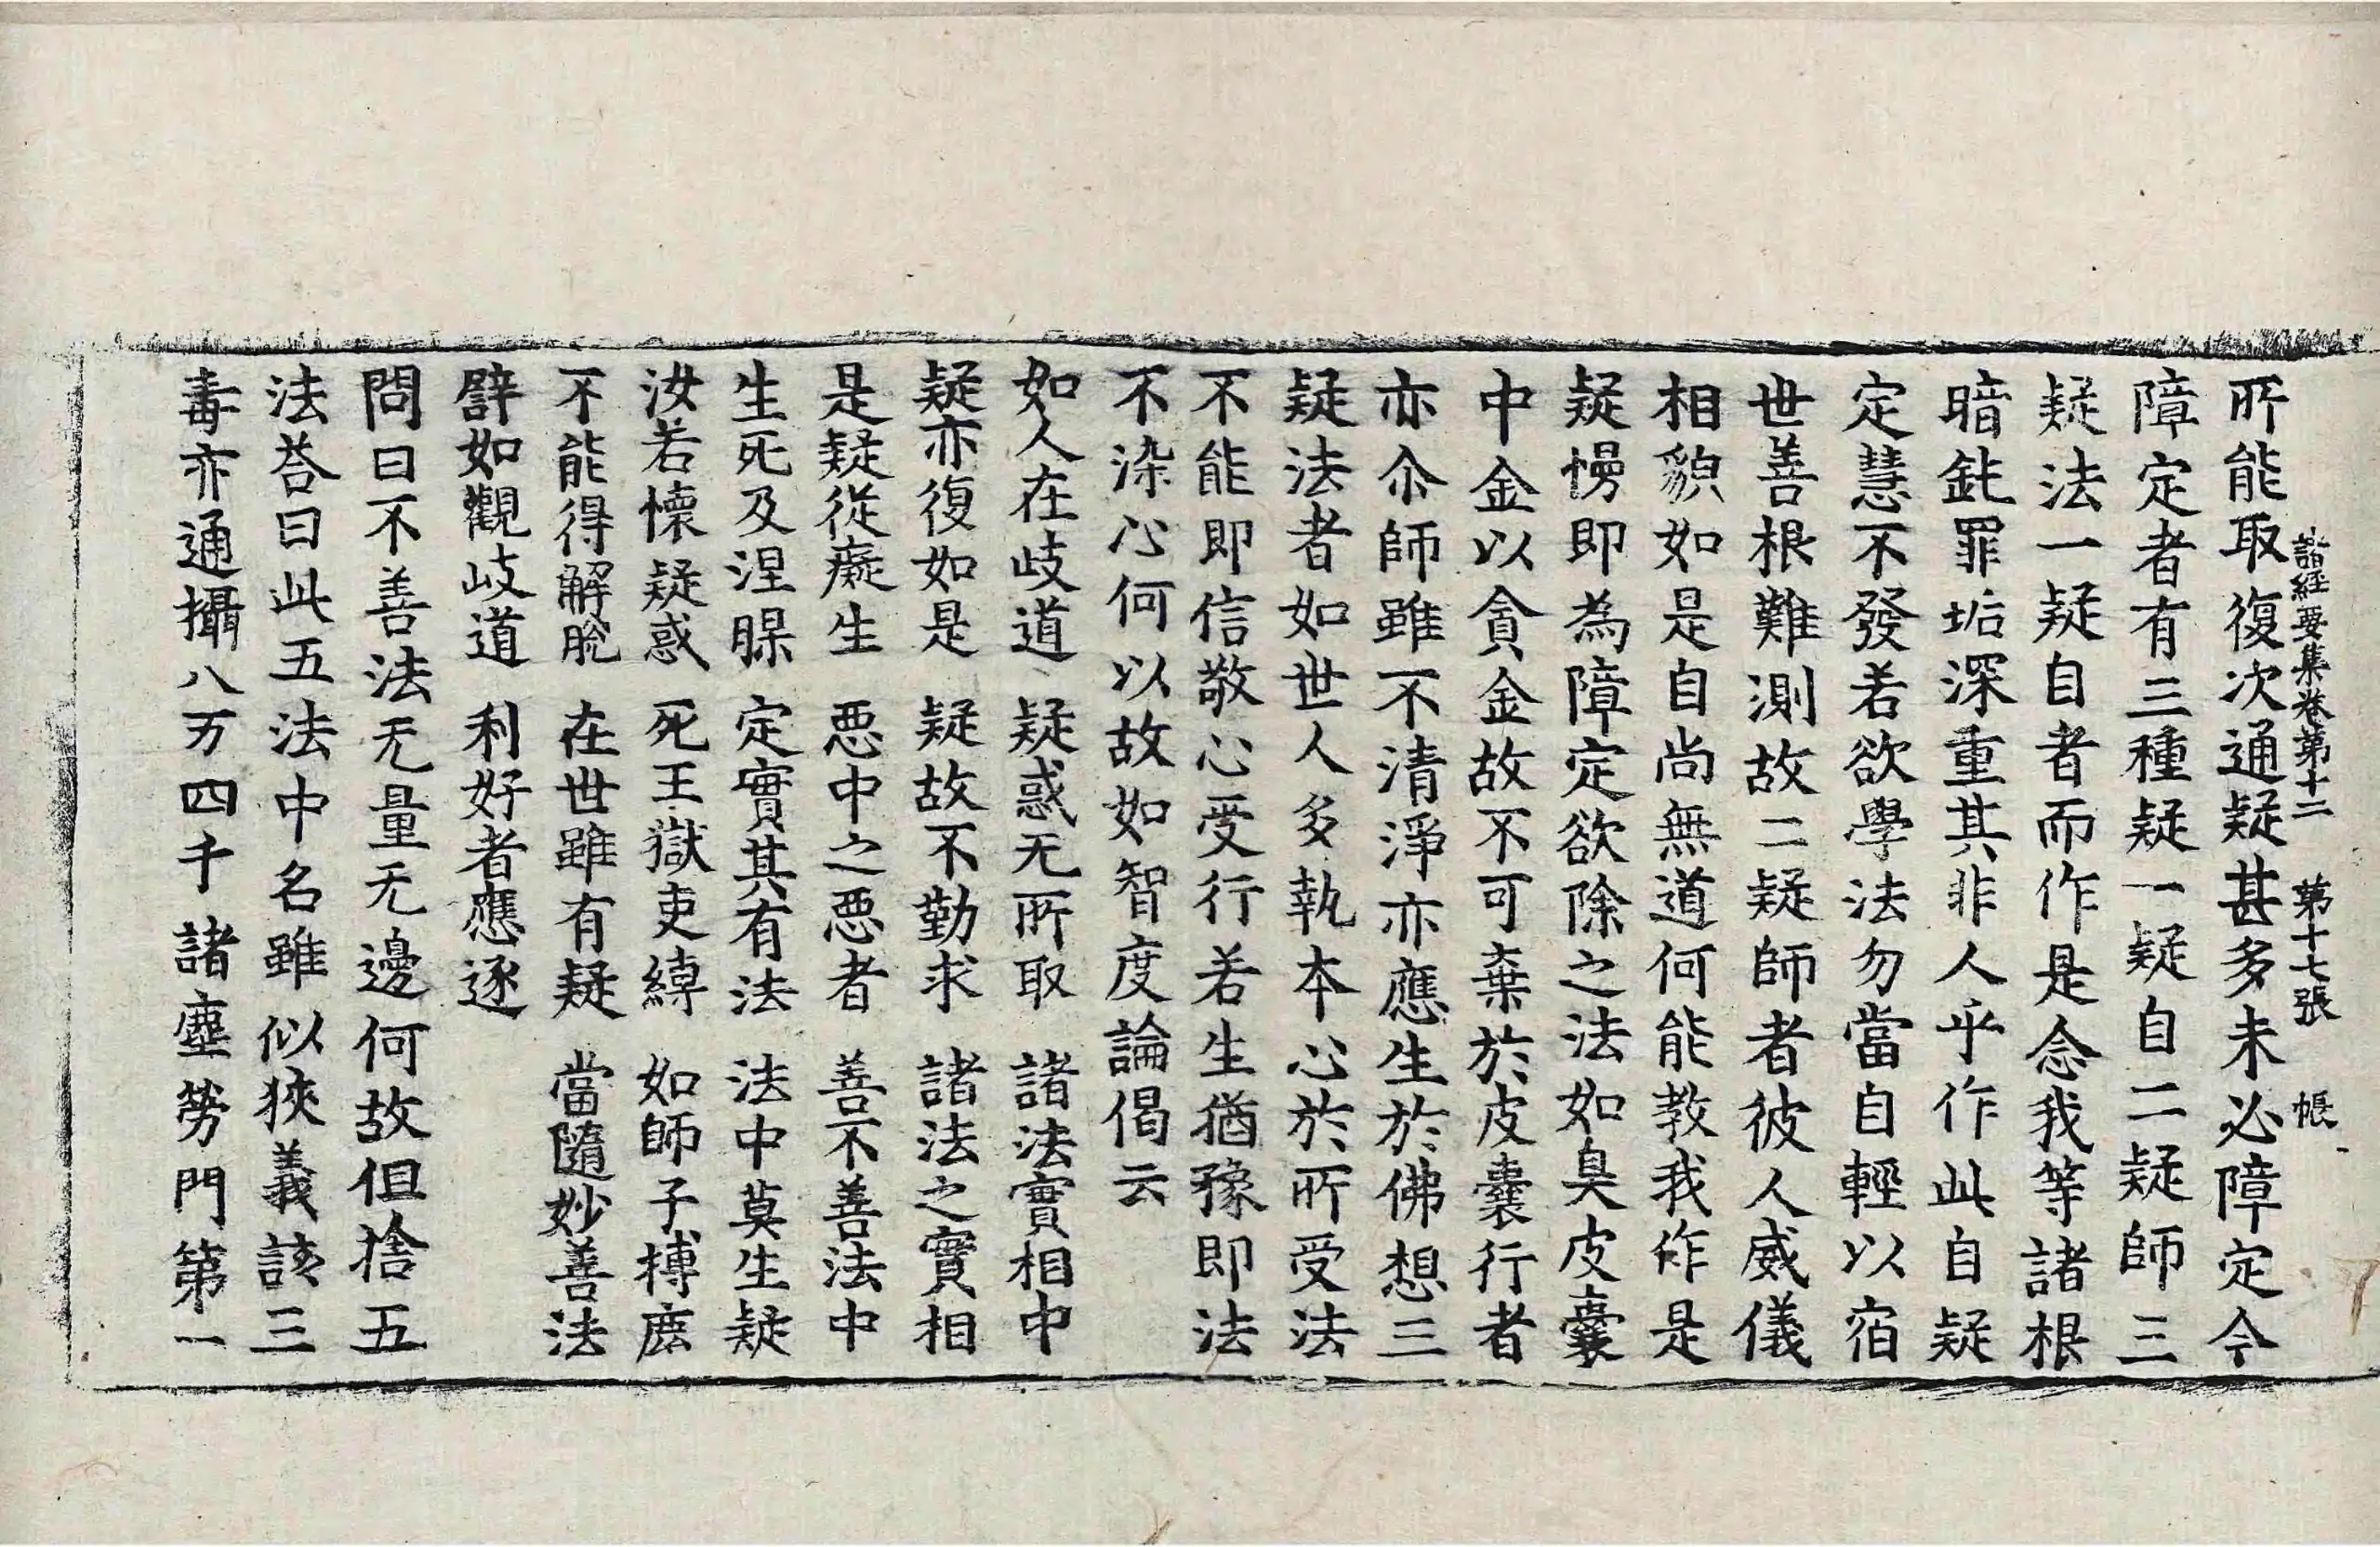 諸經要集卷第十二 第十七張 帳
所能取復次通疑甚多未必障定今
障定者有三種疑一疑自二疑師三
疑法一疑自者而作是念我等諸根
暗鈍罪垢深重其非人乎作此自疑
定慧不發若欲學法勿當自輕以宿
世善根難測故二疑師者彼人威儀
相貌如是自尚無道何能教我作是
疑慢即為障定欲除之法如臭皮囊
中金以貪金故不可棄於皮囊行者
亦尒師雖不清淨亦應生於佛想三
疑法者如世人多執本心於所受法
不能即信敬心受行若生猶豫即法
不染心何以故如智度論偈云
如人在歧道 疑惑无所取 諸法實相中
疑亦復如是 疑故不勤求 諸法之實相
是疑從癡生 惡中之惡者 善不善法中
生死及涅槃 定實其有法 法中莫生疑
汝若懷疑惑 死王獄吏縛 如師子搏鹿
不能得解脫 在世雖有疑 當隨妙善法
譬如觀歧道 利好者應逐
問曰不善法无量无邊何故但捨五
法荅曰此五法中名雖似狹義該三
毒亦通攝八万四千諸塵勞門第一